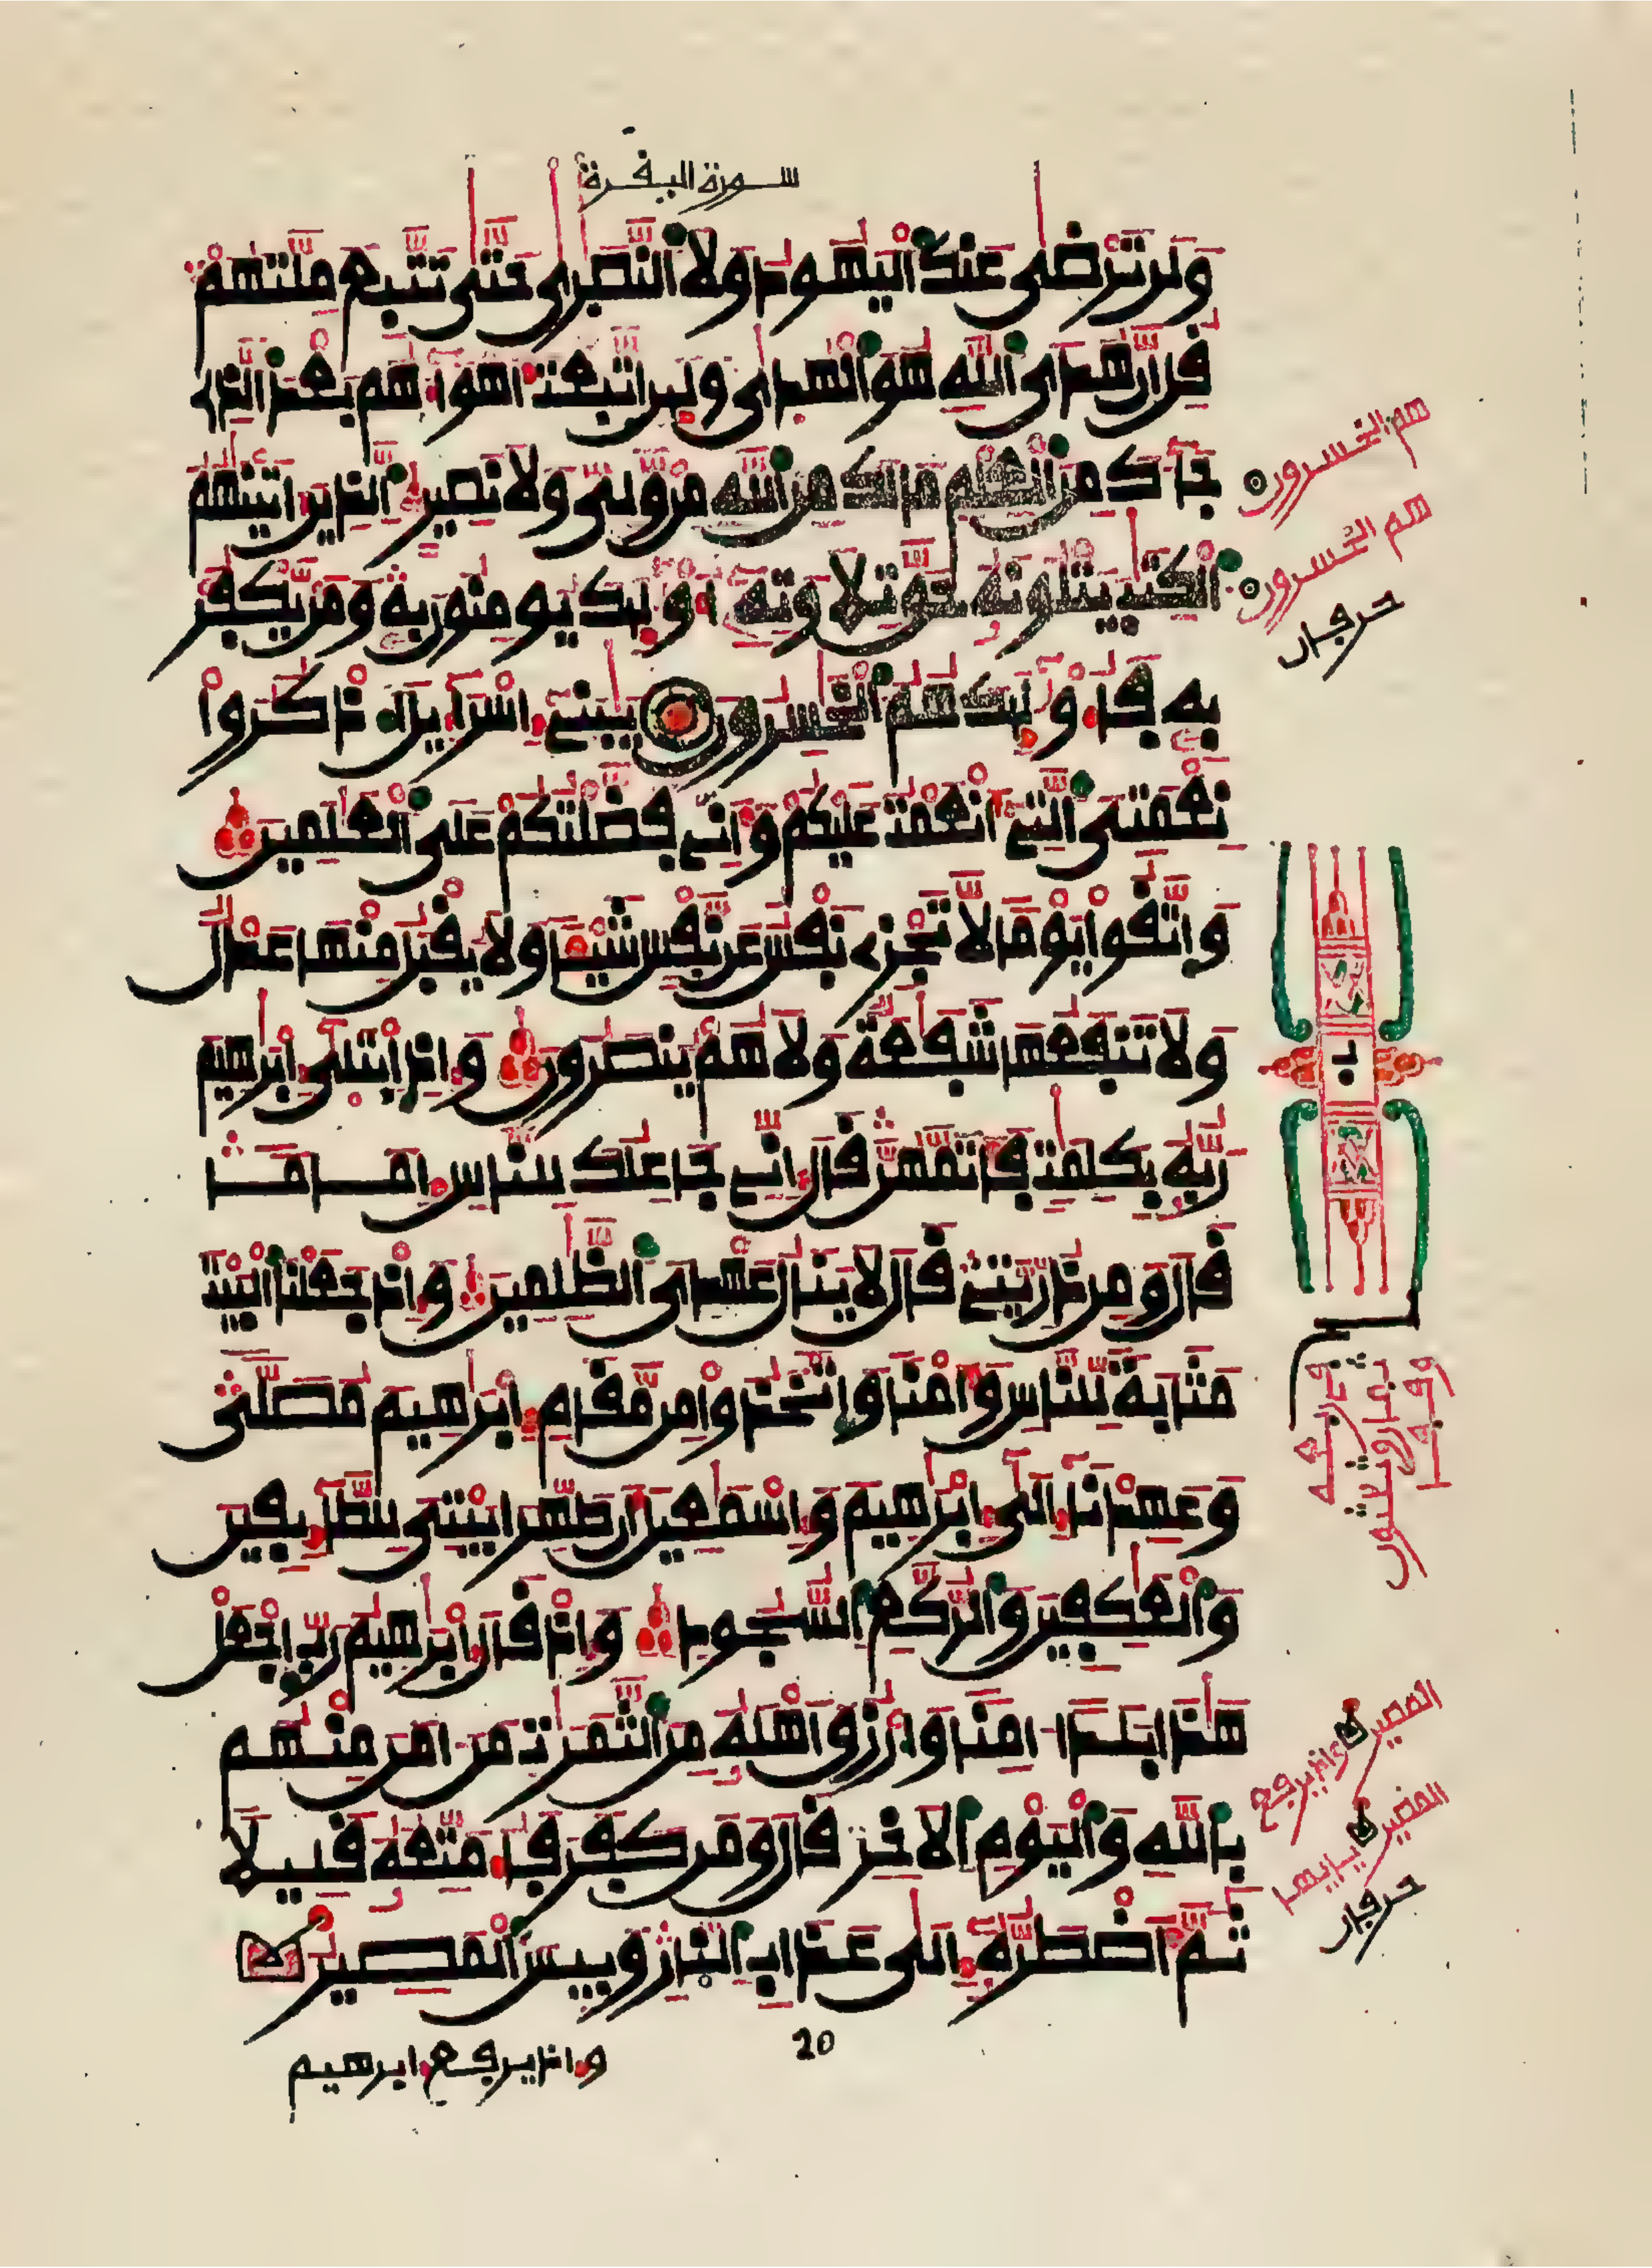 سورة البقرة
وَلَن تَرْضَىٰ عَنكَ اَلْيَهُودُ وَلَا اَلنَّصَٰرَىٰ حَتَّىٰ تَتَّبِعَ مِلَّتَهُمْ
قُلِ انَّ هُدَى اَللَّهِ هُوَ اَلْهُدَىٰ وَلَئِنِ اِتَّبَعْتَ أَهْوَآءَهُم بَعْدَ اَلذِے
جَآءَكَ مِنَ اَلْعِلْمِ مَا لَكَ مِنَ اَللَّهِ مِنْ وَلِيّٖ وَلَا نَصِيرٍ اِلذِينَ ءَاتَيْنَٰهُمُ
اُلْكِتَٰبَ يَتْلُونَهُۥ حَقَّ تِلَٰوَتِهِۦٓ أُوْلَٰٓئِكَ يُومِنُونَ بِهِۦ وَمَنْ يَّكْفُرْ
بِهِۦ فَأُوْلَٰٓئِكَ هُمُ اُلْخَٰسِرُونَ يَٰبَنِےٓ إِسْرَآءِيلَ اَ۟ذْكُرُواْ
نِعْمَتِىَ اَلتِےٓ أَنْعَمْتُ عَلَيْكُمْ وَأَنِّے فَضَّلْتُكُمْ عَلَى اَلْعَٰلَمِينَ
وَاتَّقُواْ يَوْماً لَّا تَجْزِے نَفْسٌ عَن نَّفْسٖ شَيْـٔاً وَلَا يُقْبَلُ مِنْهَا عَدْلٌ
وَلَا تَنفَعُهَا شَفَٰعَةٌ وَلَا هُمْ يُنصَرُونَ وَإِذِ اِبْتَلَىٰٓ إِبْرَٰهِيمَ
رَبُّهُۥ بِكَلِمَٰتٖ فَأَتَمَّهُنَّ قَالَ إِنِّے جَاعِلُكَ لِلنَّاسِ إِمَاماً
قَالَ وَمِن ذُرِّيَّتِے قَالَ لَا يَنَالُ عَهْدِى اَلظَّٰلِمِينَ وَإِذْ جَعَلْنَا اَلْبَيْتَ
مَثَابَةً لِّلنَّاسِ وَأَمْناً وَاتَّخَذُواْ مِن مَّقَامِ إِبْرَٰهِيمَ مُصَلّىً
وَعَهِدْنَآ إِلَىٰٓ إِبْرَٰهِيمَ وَإِسْمَٰعِيلَ أَن طَهِّرَا بَيْتِىَ لِلطَّآئِفِينَ
وَالْعَٰكِفِينَ وَالرُّكَّعِ اِلسُّجُودِ وَإِذْ قَالَ إِبْرَٰهِيمُ رَبِّ اِجْعَلْ
هَٰذَا بَلَداً ءَامِناً وَارْزُقَ اَهْلَهُۥ مِنَ اَلثَّمَرَٰتِ مَنَ اٰمَنَ مِنْهُم
بِاللَّهِ وَالْيَوْمِ اِلَاخِرِ قَالَ وَمَن كَفَرَ فَأُمَتِّعُهُۥ قَلِيلاً
ثُمَّ أَضْطَرُّهُۥٓ إِلَىٰ عَذَابِ اِلنَّارِ وَبِيسَ اَلْمَصِيرُ
20
وإذ يرفع إبرهيم
هم الخسرون
هم الخسرون
حرفان
المصير وإذ يرفع
المصير
حرفان